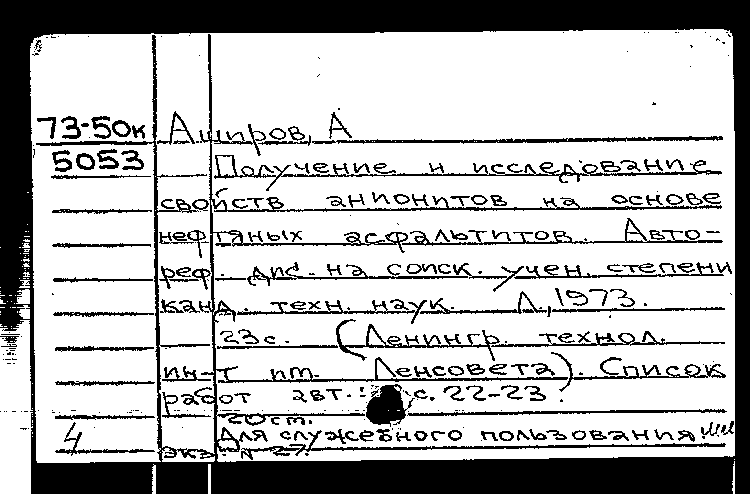 73-50к Аширов, А
5053 Получение и исследование
свойств анионитов на основе
нефтяных асфальтитов. Авто-
реф. дис. на соиск. учен. степени
канд. техн. наук. Л., 1973.
23с. (Ленингр. технол.
ин-т им. Ленсовета). Список
работ авт.: с. 22-23
20ст.
4 Для служебного пользования.
экз. N 27.